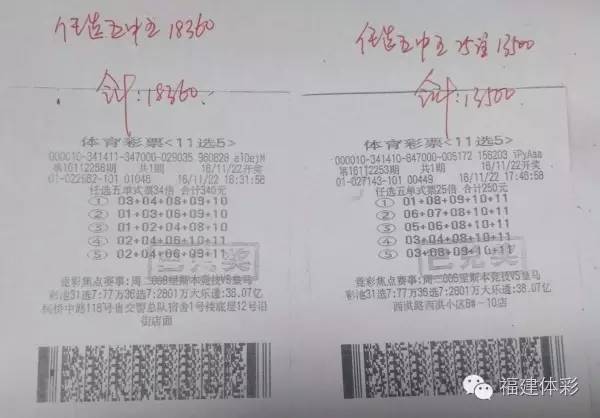 任选五中五 18360
合计:18360.
体育彩票<11选5>
000010-341411-347000-029035 960828 alOejN
第16112256期 共1期 16/11/22开奖
01-022682-101 01046 16/11/22 18:31:58
任选五单式票34倍 合计340元
① 03+04+08+09+10
② 01+03+08+09+10
③ 01+04+08+09+10
④ 02+04+06+10+11
⑤ 02+04+06+09+11
已兑奖
竞彩焦点赛事:周二006里斯本竞技VS皇马
彩池31选7:77万36选7:2801万大乐透:38.07亿
杨桥中路118号省交警总队宿舍1号楼底层12号沿
街店面
任选五中五 25注 13500
合计:13500.
体育彩票<11选5>
000010-341411-847000-005172 156203 iPyAaa
第16112253期 共1期 16/11/22开奖
01-027143-101 00449 16/11/22 17:46:58
任选五单式票25倍 合计250元
① 01+08+09+10+11
② 06+07+08+10+11
③ 05+06+08+10+11
④ 03+04+08+10+11
⑤ 03+08+09+10+11
已兑奖
竞彩焦点赛事:周二006里斯本竞技VS皇马
彩池31选7:77万36选7:2801万大乐透:38.07亿
西洪路西洪小区8#-10店
福建体彩